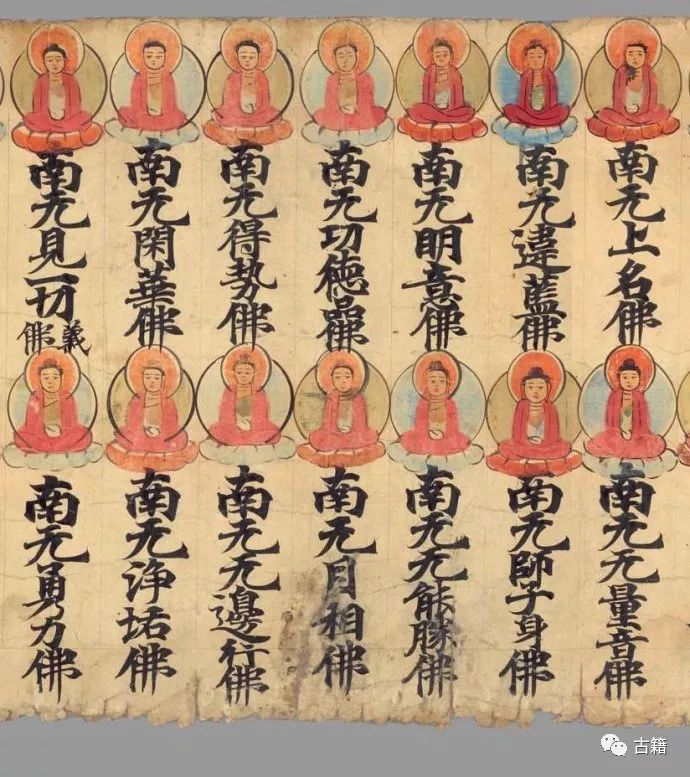 南无上名佛
南无違藍佛
南无明意佛
南无功德品佛
南无得勢佛
南无閑華佛
南无見一切義佛
南无无量音佛
南无師子身佛
南无无能勝佛
南无月相佛
南无无邊行佛
南无浄垢佛
南无勇力佛
古籍